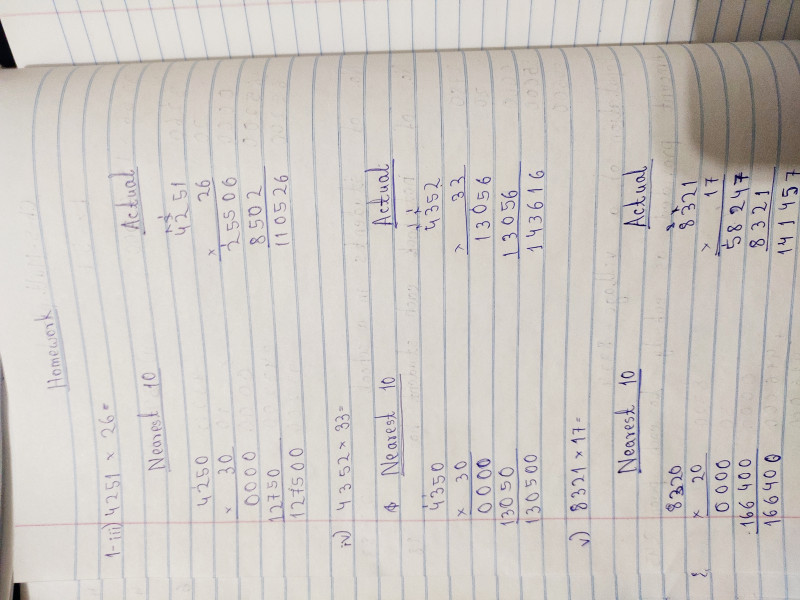 Homework
1-iii) 4251 x 26=
Nearest 10 Actual
4250 4251
x 30 x 26
0000 25506
12750 8502
127500 110526
iv) 4352 x 33=
Nearest 10 Actual
4350 4352
x 30 x 33
0000 13056
13050 13056
130500 143616
v) 8321 x 17=
Nearest 10 Actual
8320 8321
x 20 x 17
0000 58247
166400 8321
166400 141457